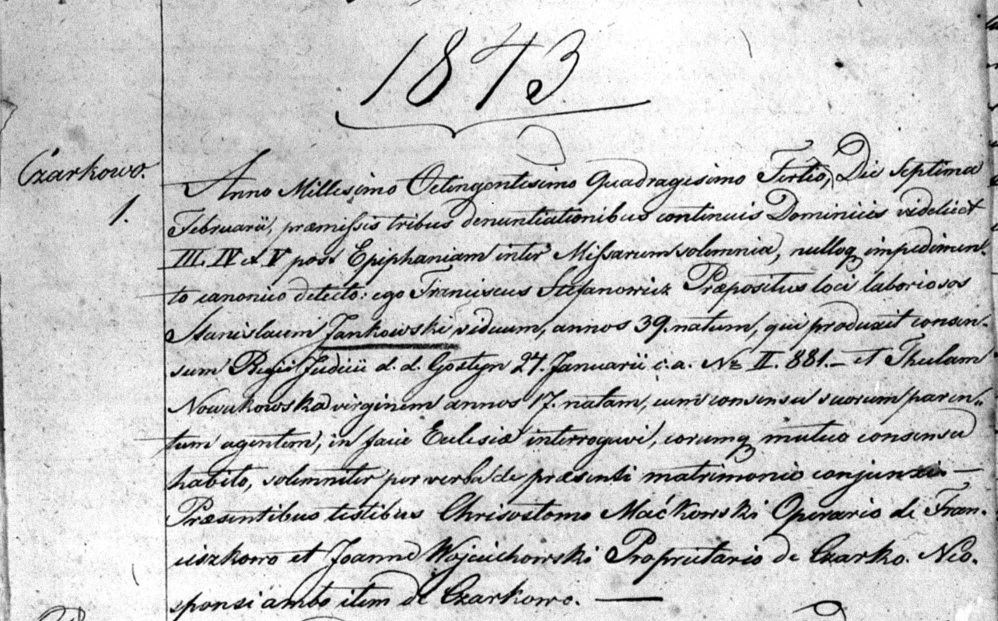 1843
Czarkowo.
1.
Anno Millesimo Octingentesimo Quadragesimo Tertio, Die Septima
Februarii, præmissis tribus denuntiationibus continuis Dominicis videlicet
III. IV et V post Epiphaniam inter Missarum solemnia, nulloq impedimen-
to canonico detecto: ego Franciscus Stefanowicz Præpositus loci laboriosos
Stanislaum Jankowski viduum, annos 39. natum, qui produxit consen-
sum Regii Judicii d. d. Gostyn 27. Januarii c. a. No II. 881. et Theclam
Nowakowska virginem annos 17. natam, cum consensu suorum paren-
tum agentem, in facie Eclesiæ interrogavi, eorumq mutuo consensu
habito, solemniter per verba de præsenti matrimonio conjunxi —
Præsentibus testibus Chrisostomo Maćkowski Operario de Fran-
ciszkowo et Joanne Wojciechowski Proprietario de Czarko. Neo-
sponsi ambo item de Czarkowo. —